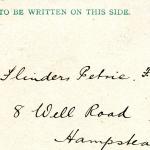 TO BE WRITTEN ON THIS SIDE.
Flinders Petrie. F
8 Well Road
Hampstea